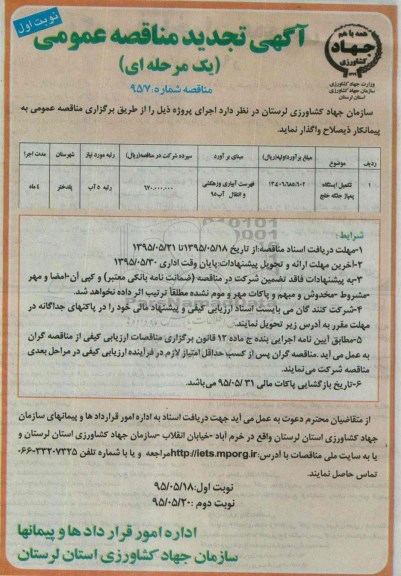 نوبت اول
همه با هم
جهاد
کشاورزی
وزارت جهاد کشاورزی
سازمان جهاد کشاورزی
استان لرستان
آگهی تجدید مناقصه عمومی
(یک مرحله ای)
مناقصه شماره ۹۵/۷
سازمان جهاد کشاورزی لرستان در نظر دارد اجرای پروژه ذیل را از طریق برگزاری مناقصه عمومی به
پیمانکار ذیصلاح واگذار نماید.
ردیف موضوع مبلغ برآورد اولیه(ریال) مبنای برآورد سپرده شرکت در مناقصه(ریال) رتبه مورد نیاز شهرستان مدت اجرا
۱ تکمیل ایستگاه فهرست آبیاری وزهکشی ۶۷۰,۰۰۰,۰۰۰ رتبه ۵ آب پلدختر ۴ ماه
پمپاژ جلگه خلج و انتقال آب۹۵
شرایط :
۱-مهلت دریافت اسناد مناقصه:از تاریخ ۱۳۹۵/۰۵/۱۸تا ۱۳۹۵/۰۵/۲۱
۲-آخرین مهلت ارائه و تحویل پیشنهادات:پایان وقت اداری ۱۳۹۵/۰۵/۳۰
۳-به پیشنهادات فاقد تضمین شرکت در مناقصه (ضمانت نامه بانکی معتبر) و کپی آن-امضا و مهر
-مشروط -مخدوش و مبهم و پاکات مهر و موم نشده مطلقا ترتیب اثر داده نخواهد شد.
۴-شرکت کنند گان می بایست اسناد ارزیابی کیفی و پیشنهاد مالی خود را در پاکتهای جداگانه در
مهلت مقرر به آدرس زیر تحویل نمایند.
۵-مطابق آیین نامه اجرایی بنده ج ماده ۱۲ قانون برگزاری مناقصات ارزیابی کیفی از مناقصه گران
به عمل می آید .مناقصه گران پس از کسب حداقل امتیاز لازم در فرآینده ارزیابی کیفی در مراحل بعدی
مناقصه شرکت می نمایند.
۶-تاریخ بازگشایی پاکات مالی ۹۵/۰۵/۳۱ می باشد.
از متقاضیان محترم دعوت به عمل می آید جهت دریافت اسناد به اداره امور قرارداد ها و پیمانهای سازمان
جهاد کشاورزی استان لرستان واقع در خرم آباد -خیابان انقلاب -سازمان جهاد کشاورزی استان لرستان و
یا به سایت ملی مناقصات با آدرس:http://iets.mporg.irمراجعه و یا با شماره تلفن ۳۳۲۰۷۳۲۵-۰۶۶
تماس حاصل نمایند.
نوبت اول:۹۵/۰۵/۱۸
نوبت دوم :۹۵/۰۵/۲۰
اداره امور قرار داد ها و پیمانها
سازمان جهاد کشاورزی استان لرستان